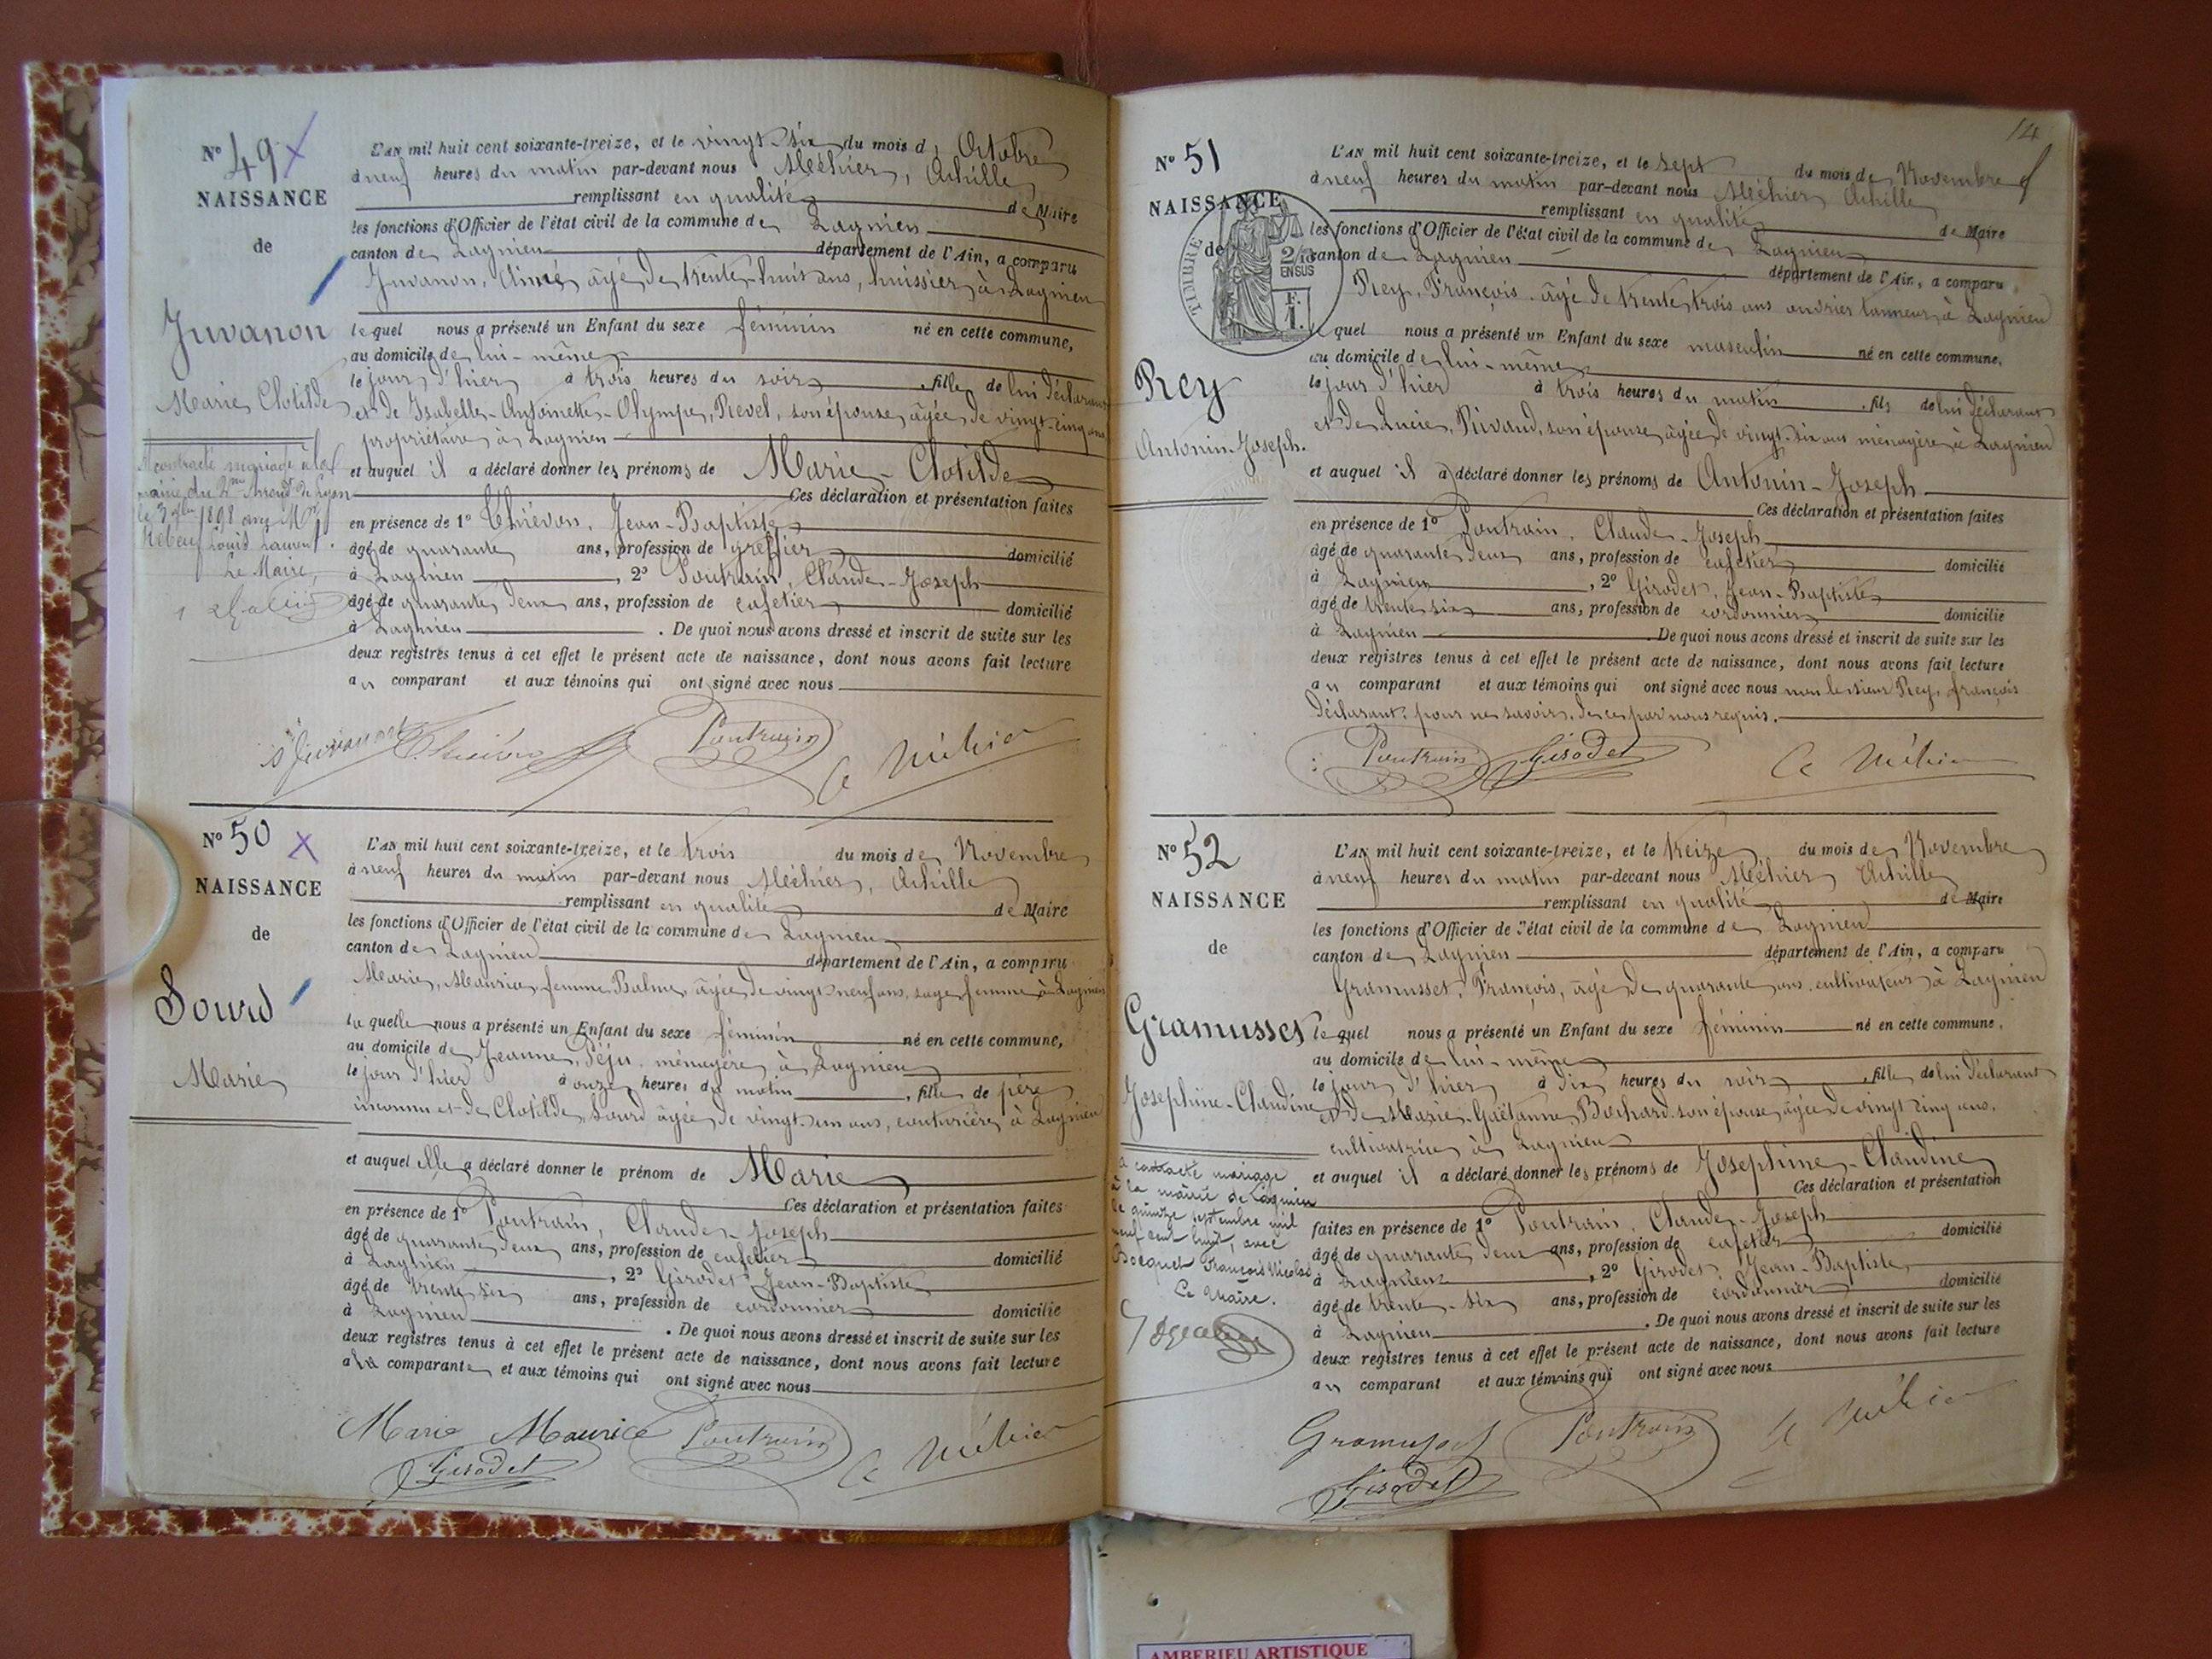 N° 49
NAISSANCE
de
Juvanon
Marie Clotilde
A contracté mariage à la
mairie du 2me Arrondt de Lyon
le 3 1898 avec Mr
Louis Laurent.
Le Maire,
L'AN mil huit cent soixante-treize, et le vingt-six du mois d'Octobre
à neuf heures du matin par-devant nous Méhier, Achille
remplissant en qualité de Maire
les fonctions d'Officier de l'état civil de la commune de Lagnieu
canton de Lagnieu département de l'Ain, a comparu
Juvanon, Aimé âgé de trente-huit ans, huissier à Lagnieu
lequel nous a présenté un Enfant du sexe féminin né en cette commune,
au domicile de lui-même
le jour d'hier à trois heures du soir, fille de lui déclarant
et de Isabelle-Antoinette-Olympe, Revel, son épouse, âgée de vingt-cinq ans
propriétaire à Lagnieu
et auquel il a déclaré donner les prénoms de Marie-Clotilde
Ces déclaration et présentation faites
en présence de 1° Thiévon, Jean-Baptiste
âgé de quarante ans, profession de greffier domicilié
à Lagnieu, 2° Poutrain, Claude-Joseph
âgé de quarante deux ans, profession de cafetier domicilié
à Lagnieu. De quoi nous avons dressé et inscrit de suite sur les
deux registres tenus à cet effet le présent acte de naissance, dont nous avons fait lecture
au comparant et aux témoins qui ont signé avec nous
Juvanon Thiévon Poutrain A Méhier
N° 50
NAISSANCE
de
Sourd
Marie
L'AN mil huit cent soixante-treize, et le trois du mois de Novembre
à neuf heures du matin par-devant nous Méhier, Achille
remplissant en qualité de Maire
les fonctions d'Officier de l'état civil de la commune de Lagnieu
canton de Lagnieu département de l'Ain, a comparu
Marie, Maurice, femme Balme, âgée de vingt-neuf ans, sage-femme à Lagnieu
laquelle nous a présenté un Enfant du sexe féminin né en cette commune,
au domicile de Jeanne, Péju, ménagère à Lagnieu
le jour d'hier à onze heures du matin, fille de père
inconnu et de Clotilde Sourd âgée de vingt-un ans, couturière à Lagnieu
et auquel elle a déclaré donner le prénom de Marie
Ces déclaration et présentation faites
en présence de 1° Poutrain, Claude-Joseph
âgé de quarante deux ans, profession de cafetier domicilié
à Lagnieu, 2° Girodet Jean-Baptiste
âgé de trente six ans, profession de cordonnier domicilié
à Lagnieu. De quoi nous avons dressé et inscrit de suite sur les
deux registres tenus à cet effet le présent acte de naissance, dont nous avons fait lecture
à la comparante et aux témoins qui ont signé avec nous
Marie Maurice Poutrain A Méhier
Girodet
14
N° 51
NAISSANCE
de
TIMBRE
2/10
EN SUS
F.
1.
Rey
Antonin-Joseph.
L'AN mil huit cent soixante-treize, et le sept du mois de Novembre
à neuf heures du matin par-devant nous Méhier Achille
remplissant en qualité de Maire
les fonctions d'Officier de l'état civil de la commune de Lagnieu
canton de Lagnieu département de l'Ain, a comparu
Rey, François âgé de trente trois ans ouvrier tanneur à Lagnieu
lequel nous a présenté un Enfant du sexe masculin né en cette commune,
au domicile de lui-même
le jour d'hier à trois heures du matin, fils de lui déclarant
et de Lucie, Rivaud, son épouse âgée de vingt-six ans ménagère à Lagnieu
et auquel il a déclaré donner les prénoms de Antonin-Joseph
Ces déclaration et présentation faites
en présence de 1° Poutrain, Claude-Joseph
âgé de quarante deux ans, profession de cafetier domicilié
à Lagnieu, 2° Girodet, Jean-Baptiste
âgé de trente six ans, profession de cordonnier domicilié
à Lagnieu. De quoi nous avons dressé et inscrit de suite sur les
deux registres tenus à cet effet le présent acte de naissance, dont nous avons fait lecture
au comparant et aux témoins qui ont signé avec nous non le sieur Rey, françois
déclarant, pour ne savoir, de ce par nous requis.
Poutrain Girodet A Méhier
N° 52
NAISSANCE
de
Gramusset
Josephine-Claudine
a contracté mariage
à la mairie de Lagnieu
le quinze septembre mil
neuf cent huit, avec
Bocquet François Nicolas
Le Maire.
L'AN mil huit cent soixante-treize, et le treize du mois de Novembre
à neuf heures du matin par-devant nous Méhier Achille
remplissant en qualité de Maire
les fonctions d'Officier de l'état civil de la commune de Lagnieu
canton de Lagnieu département de l'Ain, a comparu
Gramusset, François, âgé de quarante ans, cultivateur à Lagnieu
lequel nous a présenté un Enfant du sexe féminin né en cette commune,
au domicile de lui-même
le jour d'hier à dix heures du soir, fille de lui déclarant
et de Marie-Gaëtanne Bochard son épouse, âgée de vingt cinq ans,
cultivatrice à Lagnieu
et auquel il a déclaré donner les prénoms de Josephine-Claudine
Ces déclaration et présentation
faites en présence de 1° Poutrain, Claude-Joseph
âgé de quarante deux ans, profession de cafetier domicilié
à Lagnieu, 2° Girodet, Jean-Baptiste
âgé de trente-six ans, profession de cordonnier domicilié
à Lagnieu. De quoi nous avons dressé et inscrit de suite sur les
deux registres tenus à cet effet le présent acte de naissance, dont nous avons fait lecture
au comparant et aux témoins qui ont signé avec nous
Gramusset Poutrain A Méhier
Girodet
AMBERIEU ARTISTIQUE